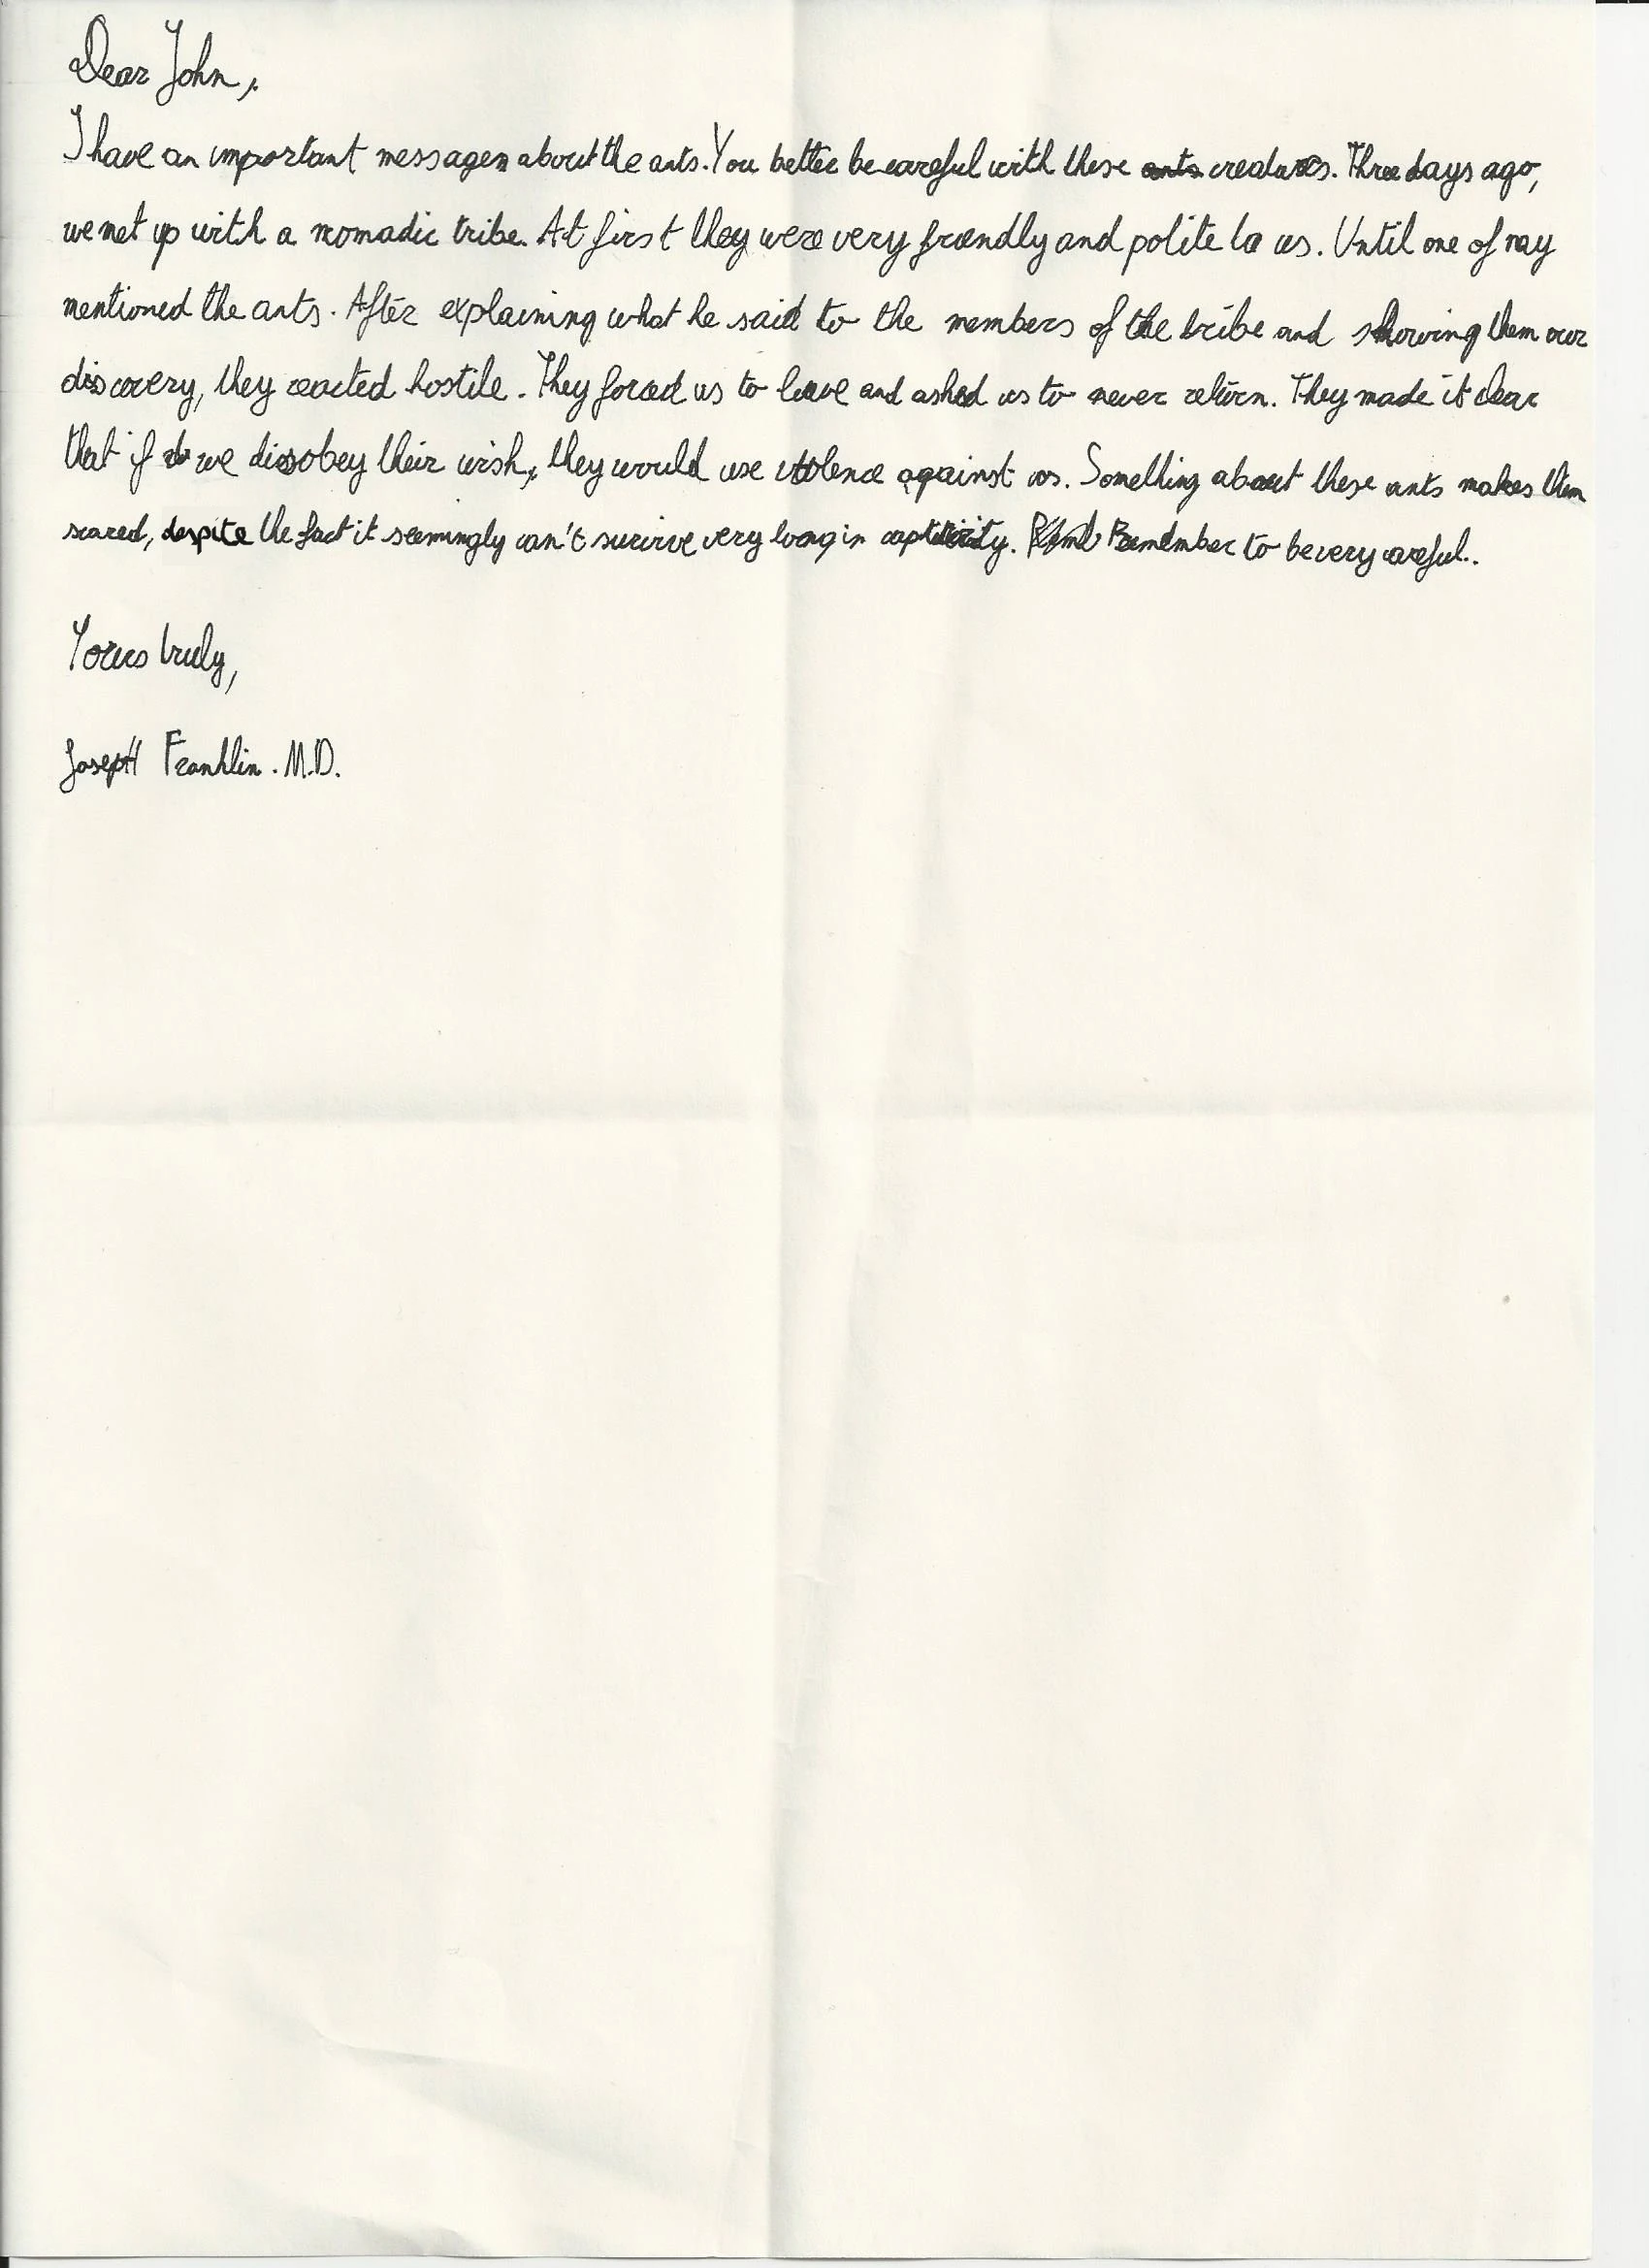 Dear John,
I have an important messagen about the ants. You better be careful with these ants creatures. Three days ago,
we met up with a nomadic tribe. At first they were very friendly and polite to us. Until one of my
mentioned the ants. After explaining what he said to the members of the tribe and showing them our
discovery, they reacted hostile. They forced us to leave and asked us to never return. They made it clear
that if we dissobey their wish, they would use violence against us. Something about these ants makes them
scared, despite the fact it seemingly can't survive very long in captivity. Remember to be very careful..
Yours truly,
Joseph Franklin. M.D.